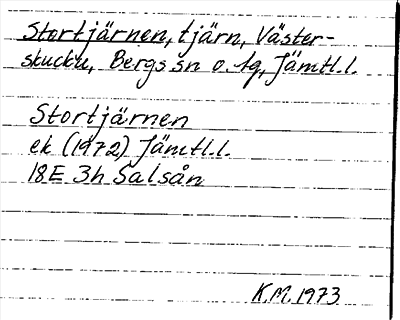 Stortjärnen, tjärn, Väster-
skucku, Bergs sn o. tg, Jämtl.l.
Stortjärnen
ek (1972) Jämtl.l.
18E 3h Salsån
K.M. 1973